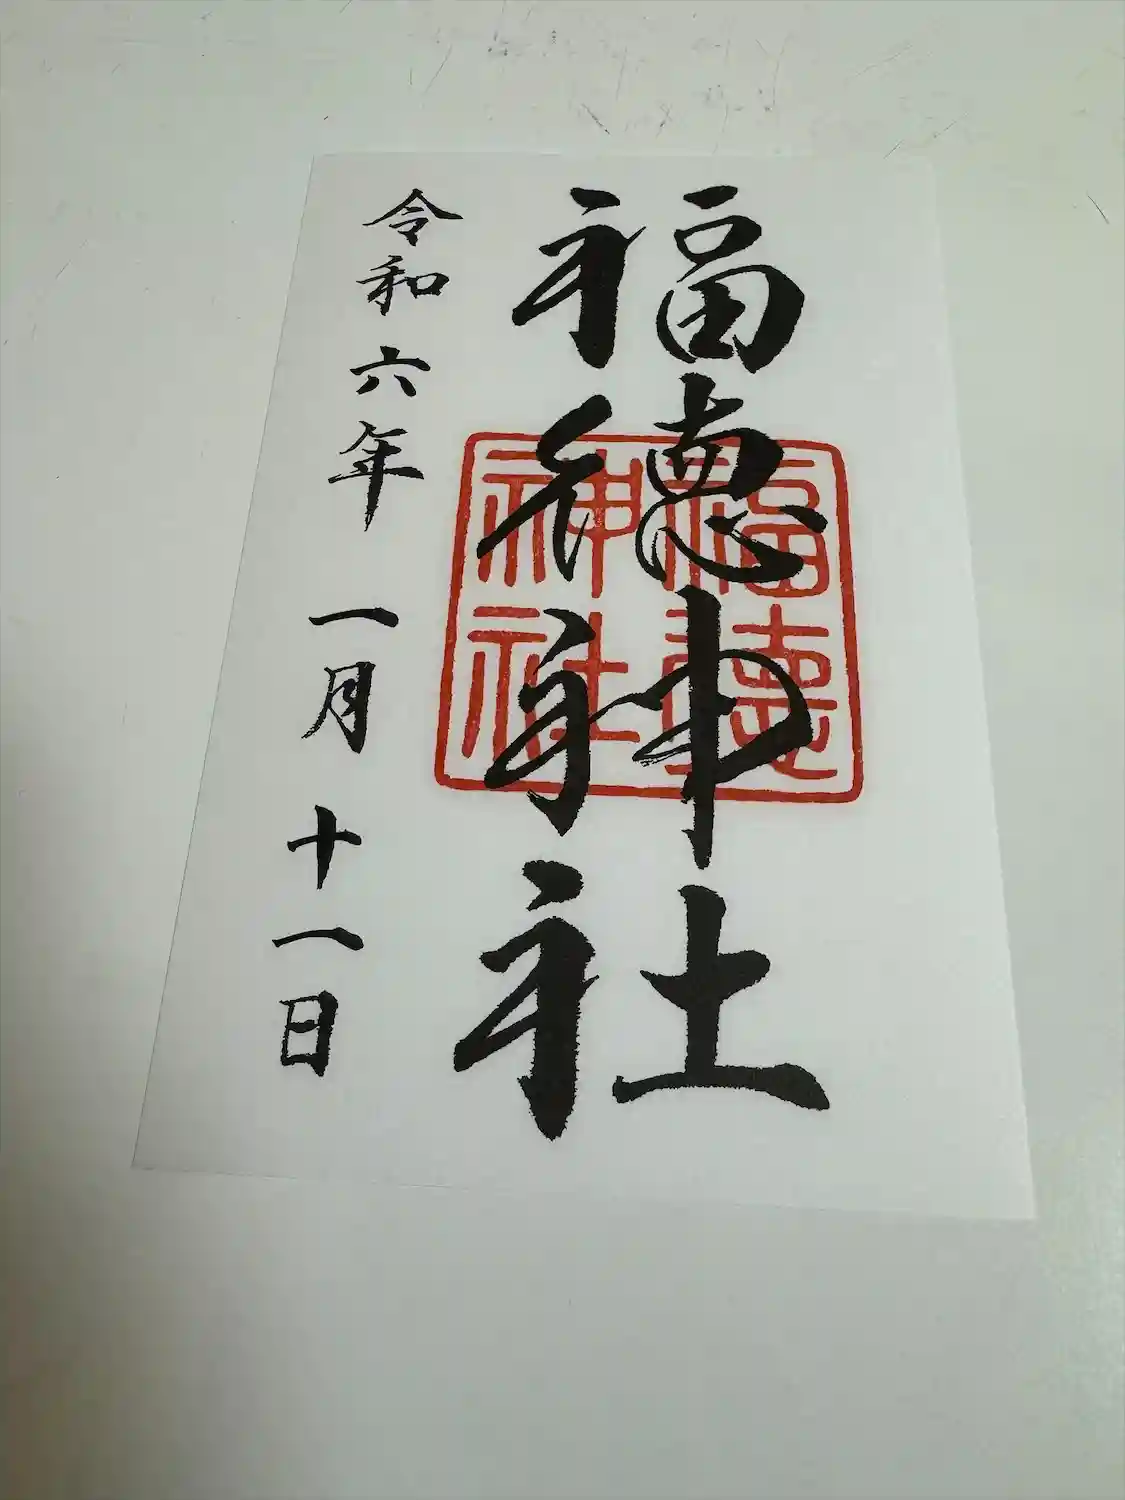 福德神社
福德神社
令和六年一月十一日